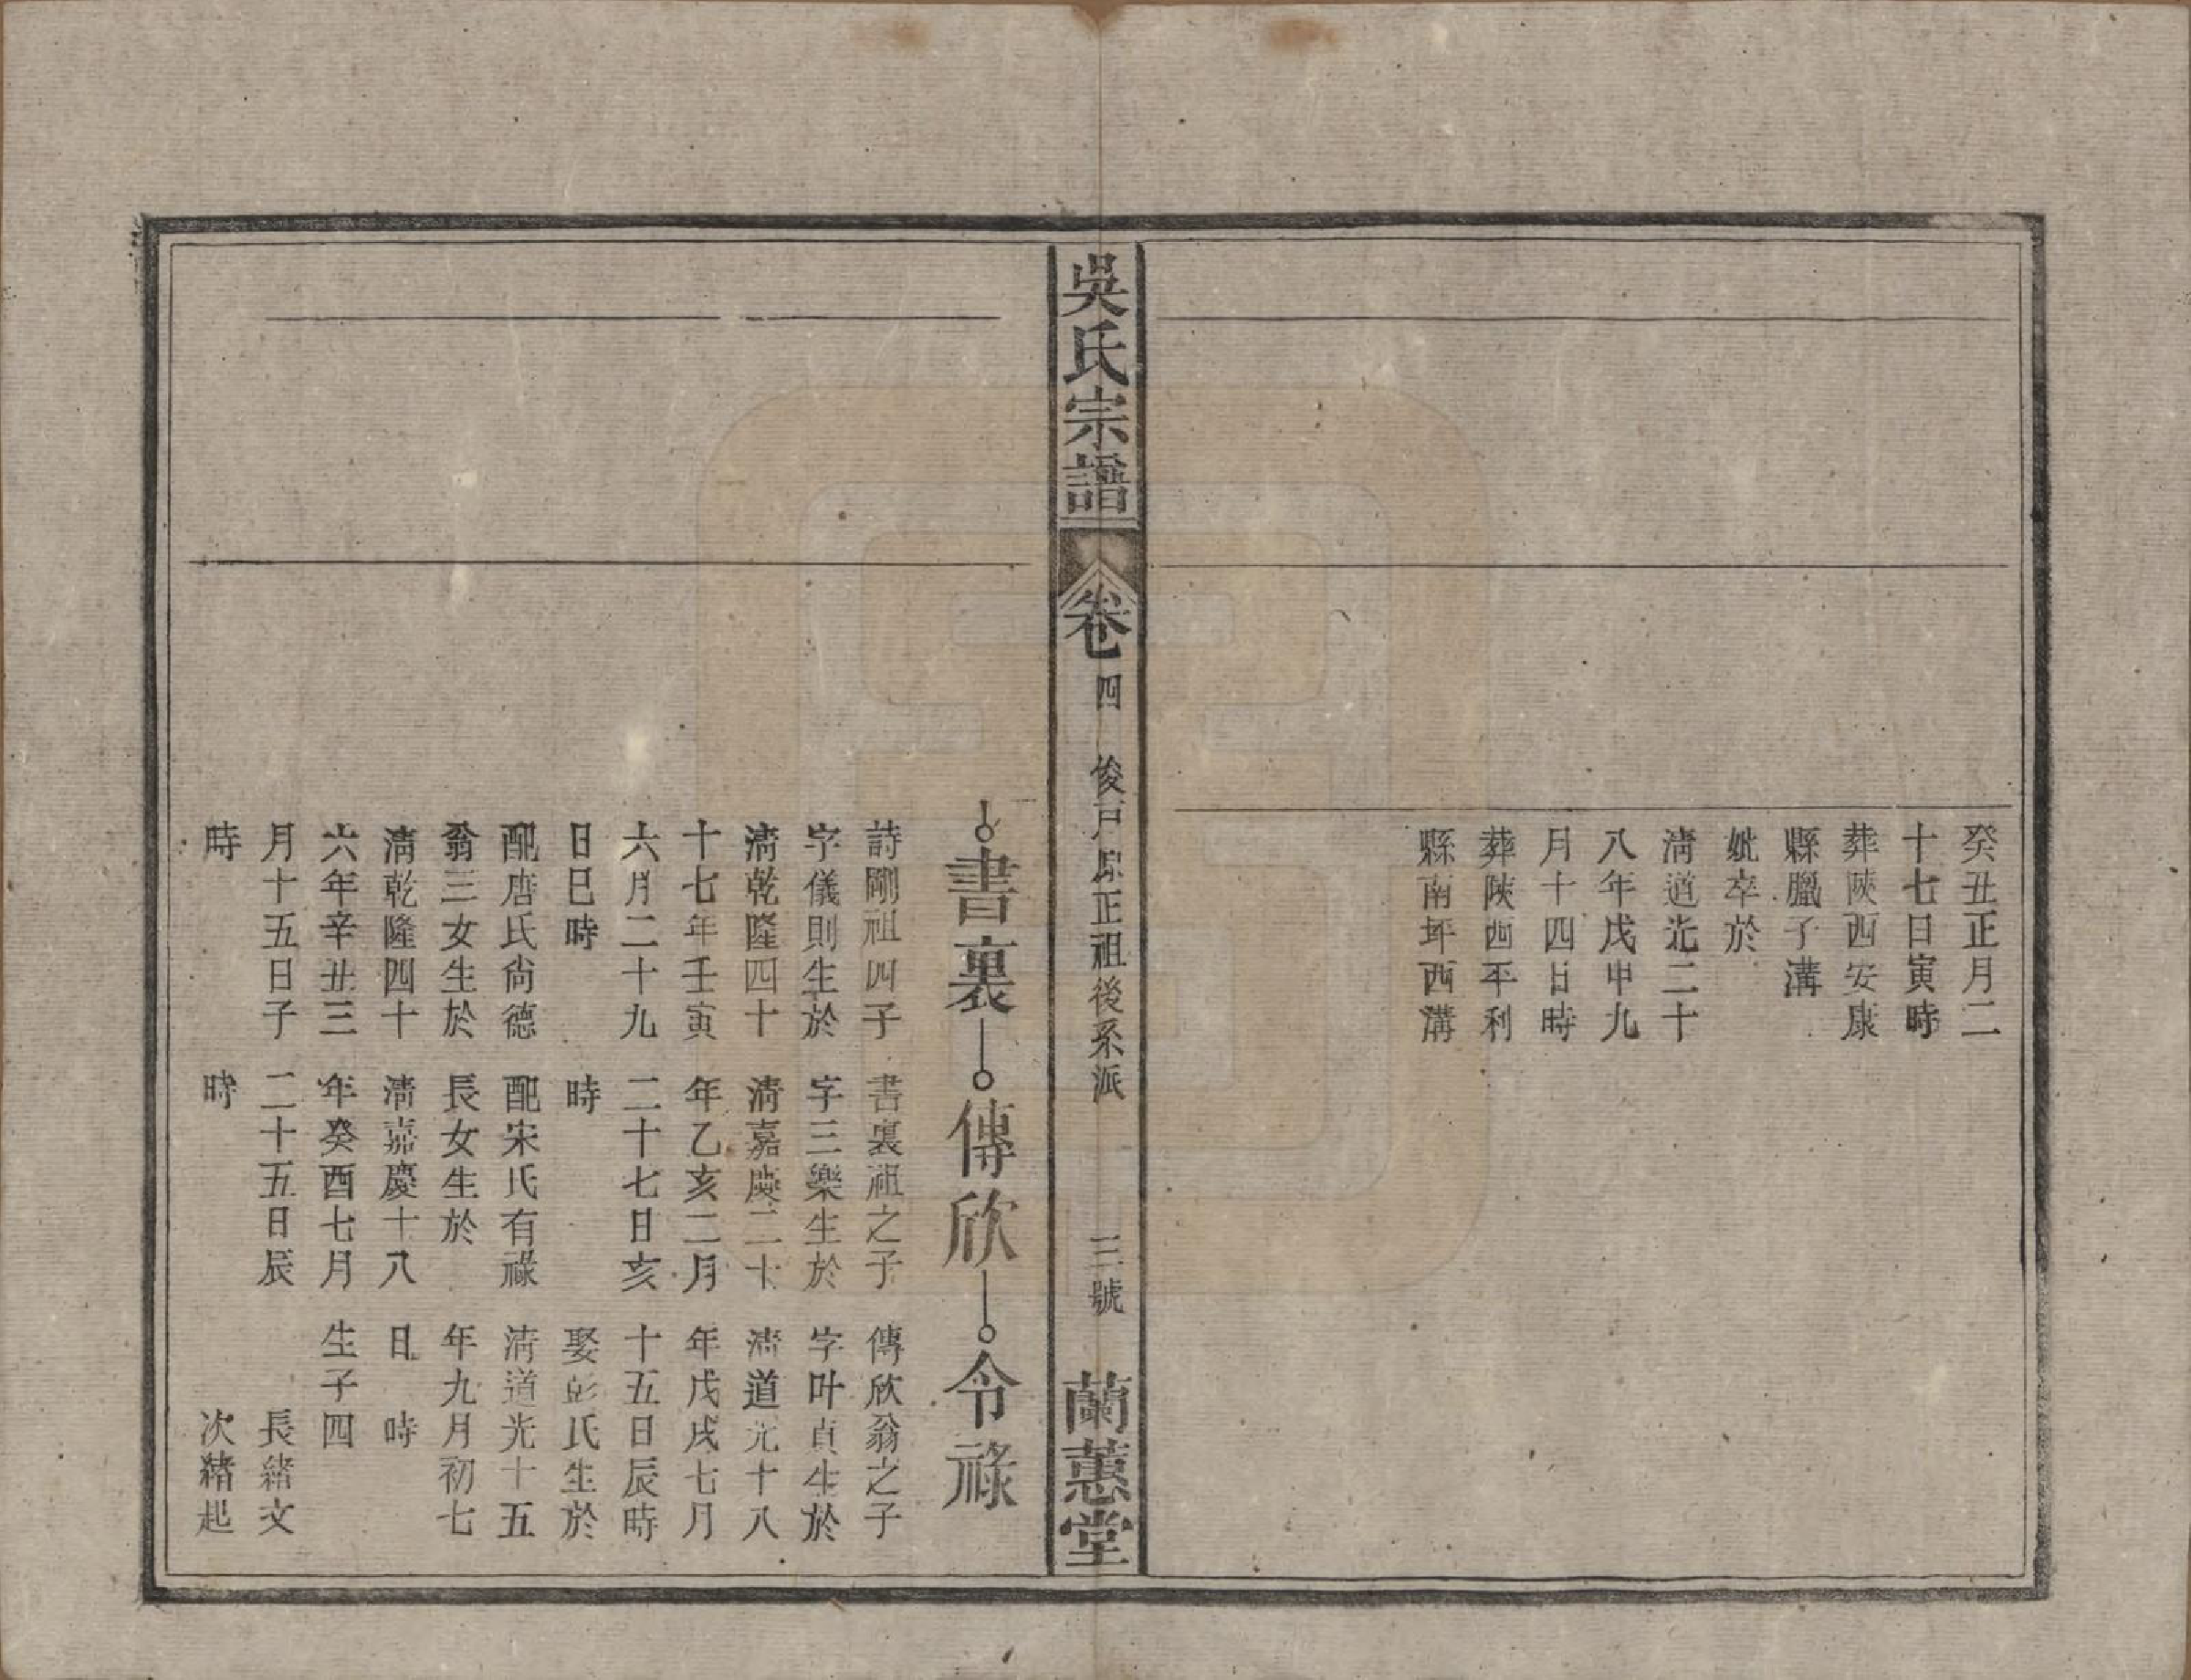 癸丑正月二
十七日寅時
葬陝西安康
縣臘子溝
妣卒於
清道光二十
八年戊申九
月十四日時
葬陝西平利
縣南坪西溝
吳氏宗譜
卷四
俊戸原正祖後系派
三號
蘭蕙堂
書裏
傳欣
令祿
詩剛祖四子
字儀則生於
清乾隆四十
十七年壬寅
六月二十九
日巳時
配唐氏尙德
翁三女生於
清乾隆四十
六年辛丑三
月十五日子
時
書裏祖之子
字三樂生於
清嘉慶二十
年乙亥二月
二十七日亥
時
配宋氏有祿
長女生於
清嘉慶十八
年癸酉七月
二十五日辰
時
傳欣翁之子
字叶貞生於
清道光十八
年戊戌七月
十五日辰時
娶彭氏生於
清道光十五
年九月初七
日 時
生子四
長緒文
次緒起